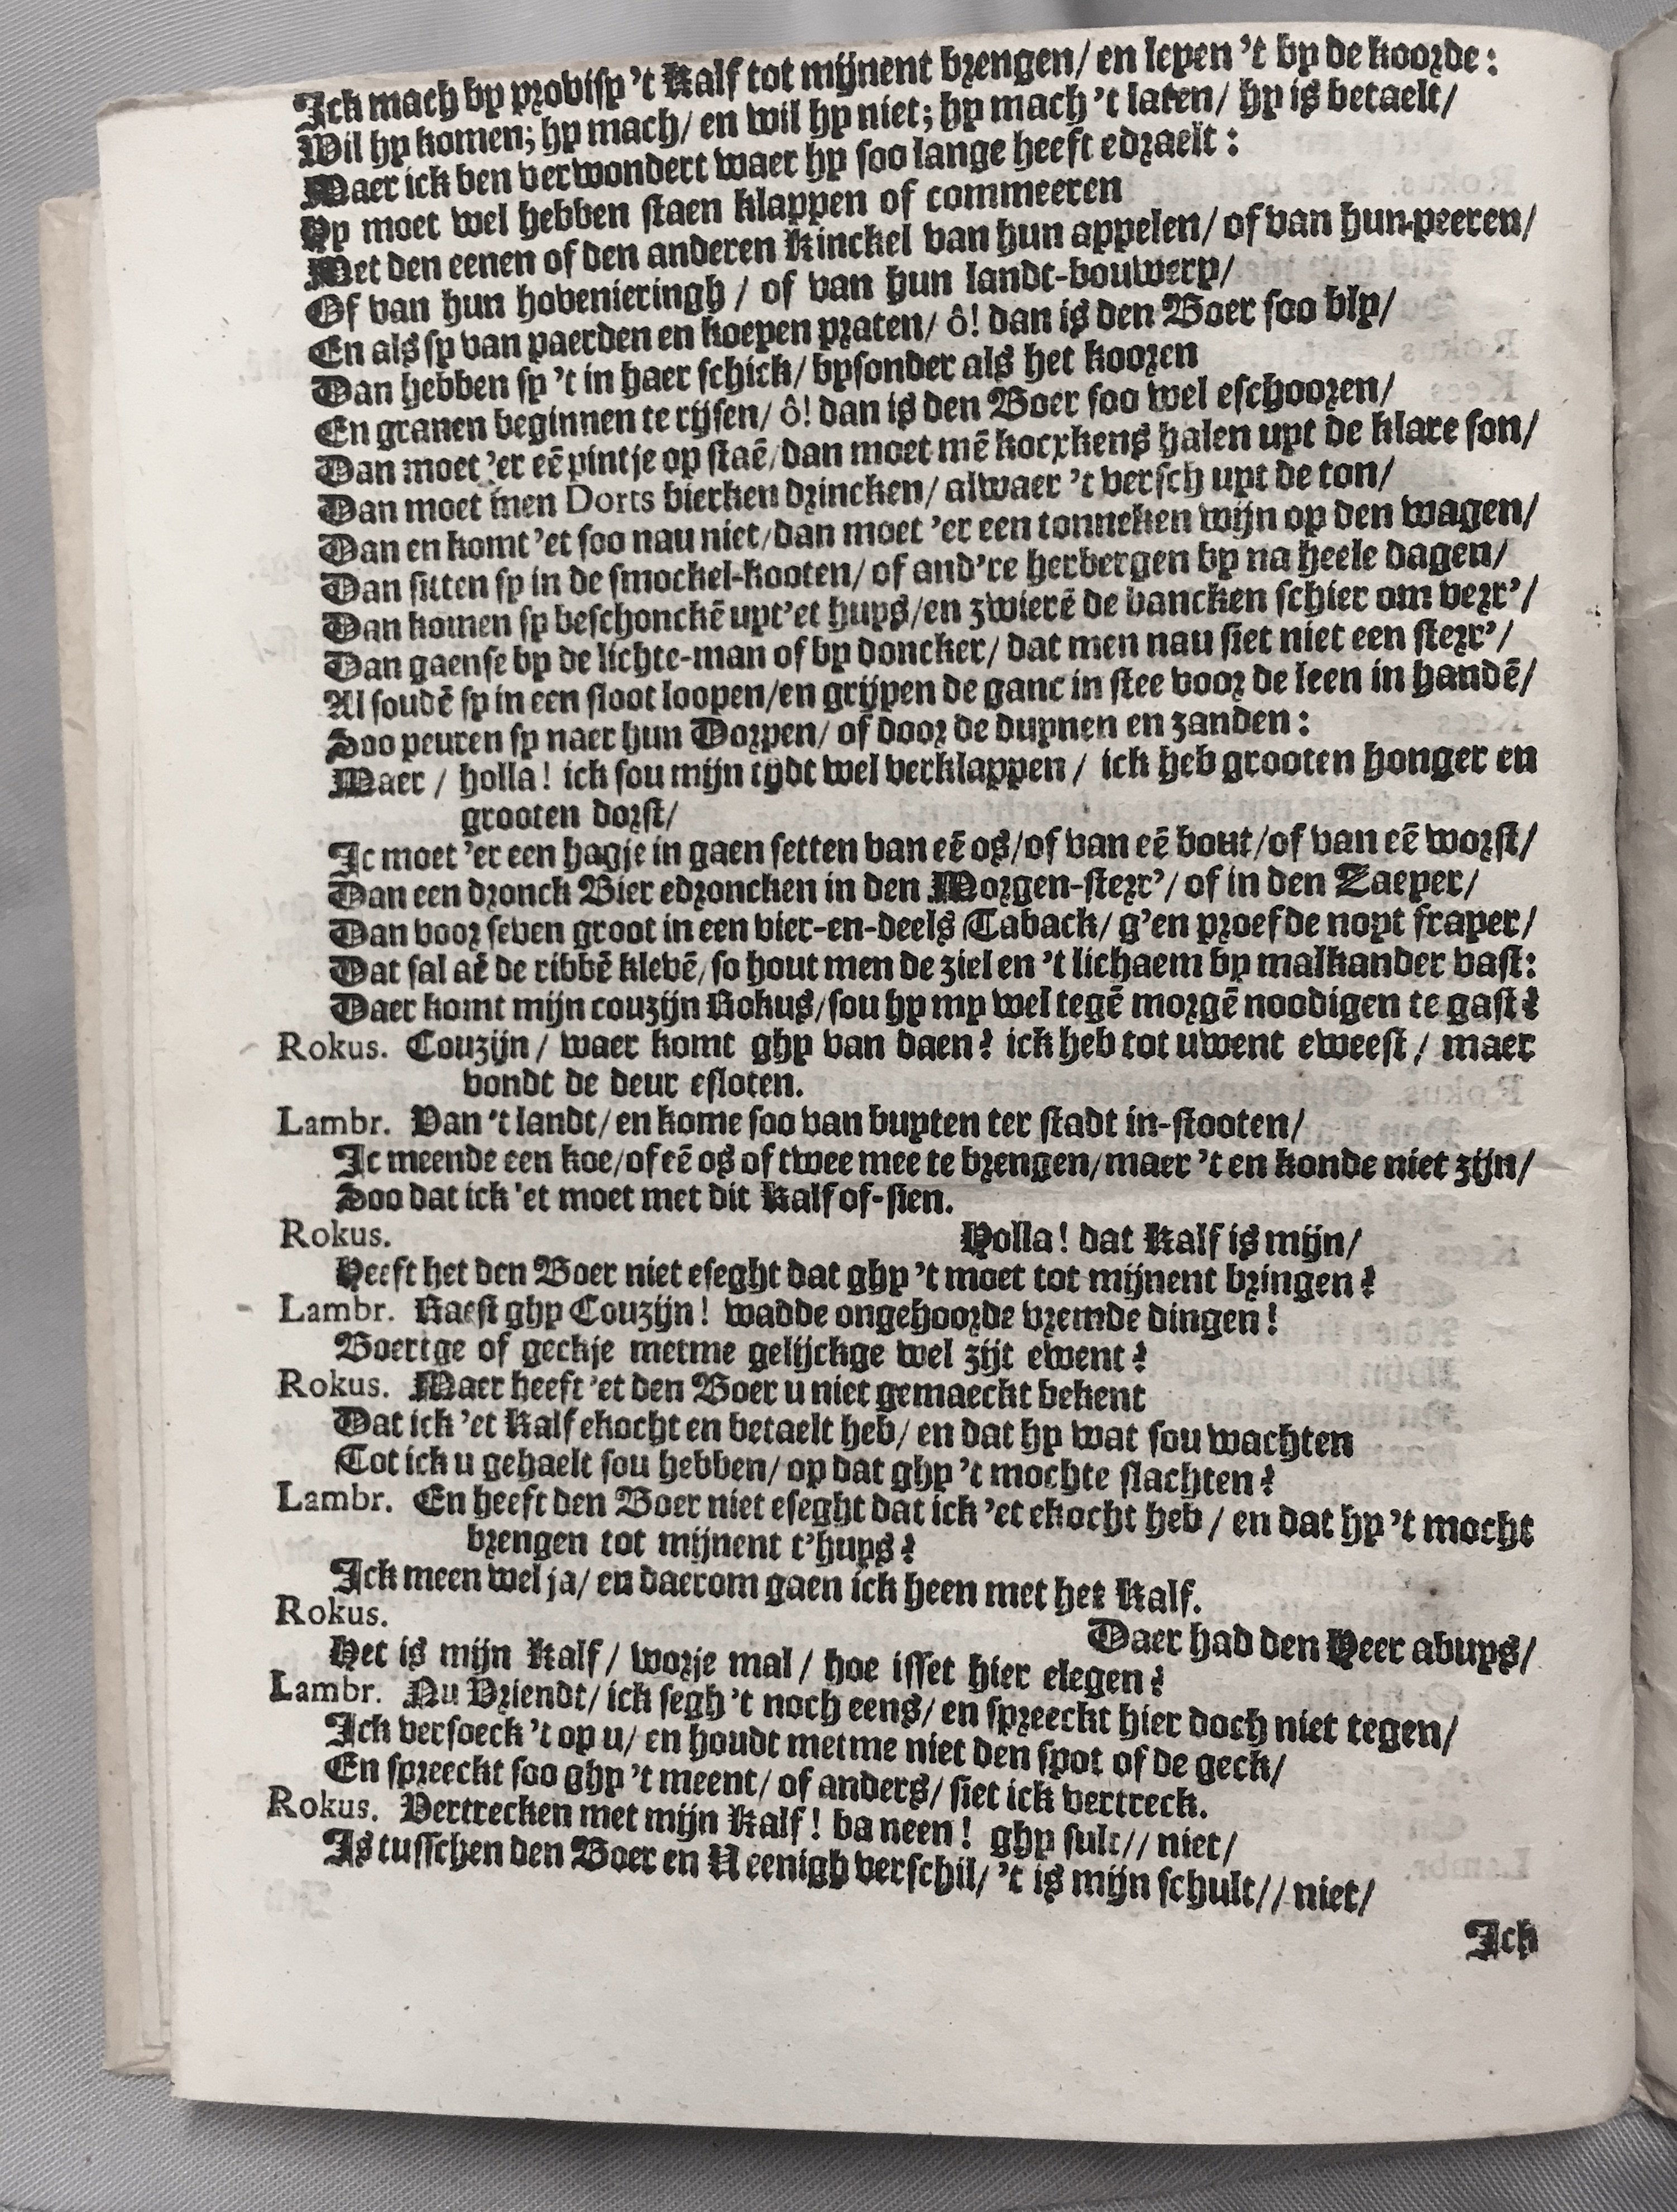 Ick mach by provisy 't Kalf tot mijnent brengen/ en leyen 't by de koorde:
Wil hy komen; hy mach/ en wil hy niet; hy mach 't laten/ hy is betaelt/
Maer ick ben verwondert waer hy soo lange heeft edraelt:
Hy moet wel hebben staen klappen of commeeren
Met den eenen of den anderen Kinckel van hun appelen/ of van hun-peeren/
Of van hun hovenieringh / of van hun landt-bouwery/
En als sy van paerden en koeyen praten/ ô! dan is den Boer soo bly/
Dan hebben sy 't in haer schick/ bysonder als het kooren
En granen beginnen te rijsen/ ô! dan is den Boer soo wel eschooren/
Dan moet 'er eẽ pintje op staẽ/dan moet mẽ koexkens halen uyt de klare son/
Dan moet men Dorts bierken drincken/ alwaer 't versch uyt de ton/
Dan en komt 'et soo nau niet/dan moet 'er een tonneken wijn op den wagen/
Dan sitten sy in de smockel-kooten/ of and're herbergen by na heele dagen/
Dan komen sy beschonckẽ uyt'et huys/en zwierẽ de bancken schier om verr'/
Dan gaense by de lichte-man of by doncker/ dat men nau siet niet een sterr'/
Al soudẽ sy in een sloot loopen/en grijpen de ganc in stee voor de leen in handẽ/
Soo peuren sy naer hun Dorpen/ of door de duynen en zanden:
Maer / holla! ick sou mijn tydt wel verklappen / ick heb grooten honger en
grooten dorst/
Ic moet 'er een hagje in gaen setten van eẽ os/of van eẽ bout/of van eẽ worst/
Dan een dronck Bier edroncken in den Morgen-sterr'/ of in den Zaeyer/
Dan voor seven groot in een vier-en-deels Taback/ g'en proefde noyt frayer/
Dat sal aẽ de ribbẽ klevẽ/so hout men de ziel en 't lichaem by malkander vast:
Daer komt mijn couzijn Rokus/sou hy my wel tegẽ morgẽ noodigen te gast?
Rokus. Couzijn / waer komt ghy van daen? ick heb tot uwent eweest / maer
vondt de deur esloten.
Lambr. Van 't landt/ en kome soo van buyten ter stadt in-stooten/
Ic meende een koe/of eẽ os of twee mee te brengen/maer 't en konde niet zijn/
Soo dat ick 'et moet met dit Kalf of-sien.
Rokus. Holla! dat Kalf is mijn/
Heeft het den Boer niet eseght dat ghy 't moet tot mijnent bringen?
Lambr. Raest ghy Couzijn! wadde ongehoorde vremde dingen!
Boertge of geckje metme gelijckge wel zijt ewent?
Rokus. Maer heeft 'et den Boer u niet gemaeckt bekent
Dat ick 'et Kalf ekocht en betaelt heb/ en dat hy wat sou wachten
Tot ick u gehaelt sou hebben/ op dat ghy 't mochte slachten?
Lambr. En heeft den Boer niet eseght dat ick 'et ekocht heb / en dat hy 't mocht
brengen tot mijnent t'huys?
Ick meen wel ja/ en daerom gaen ick heen met het Kalf.
Rokus. Daer had den Heer abuys/
Het is mijn Kalf / worje mal / hoe isset hier elegen?
Lambr. Nu Vriendt/ ick segh 't noch eens/ en spreeckt hier doch niet tegen/
Ick versoeck 't op u/ en houdt metme niet den spot of de geck/
En spreeckt soo ghy 't meent/ of anders/ siet ick vertreck.
Rokus. Vertrecken met mijn Kalf! ba neen! ghy sult// niet/
Is tusschen den Boer en U eenigh verschil/ 't is mijn schult// niet/
Ick